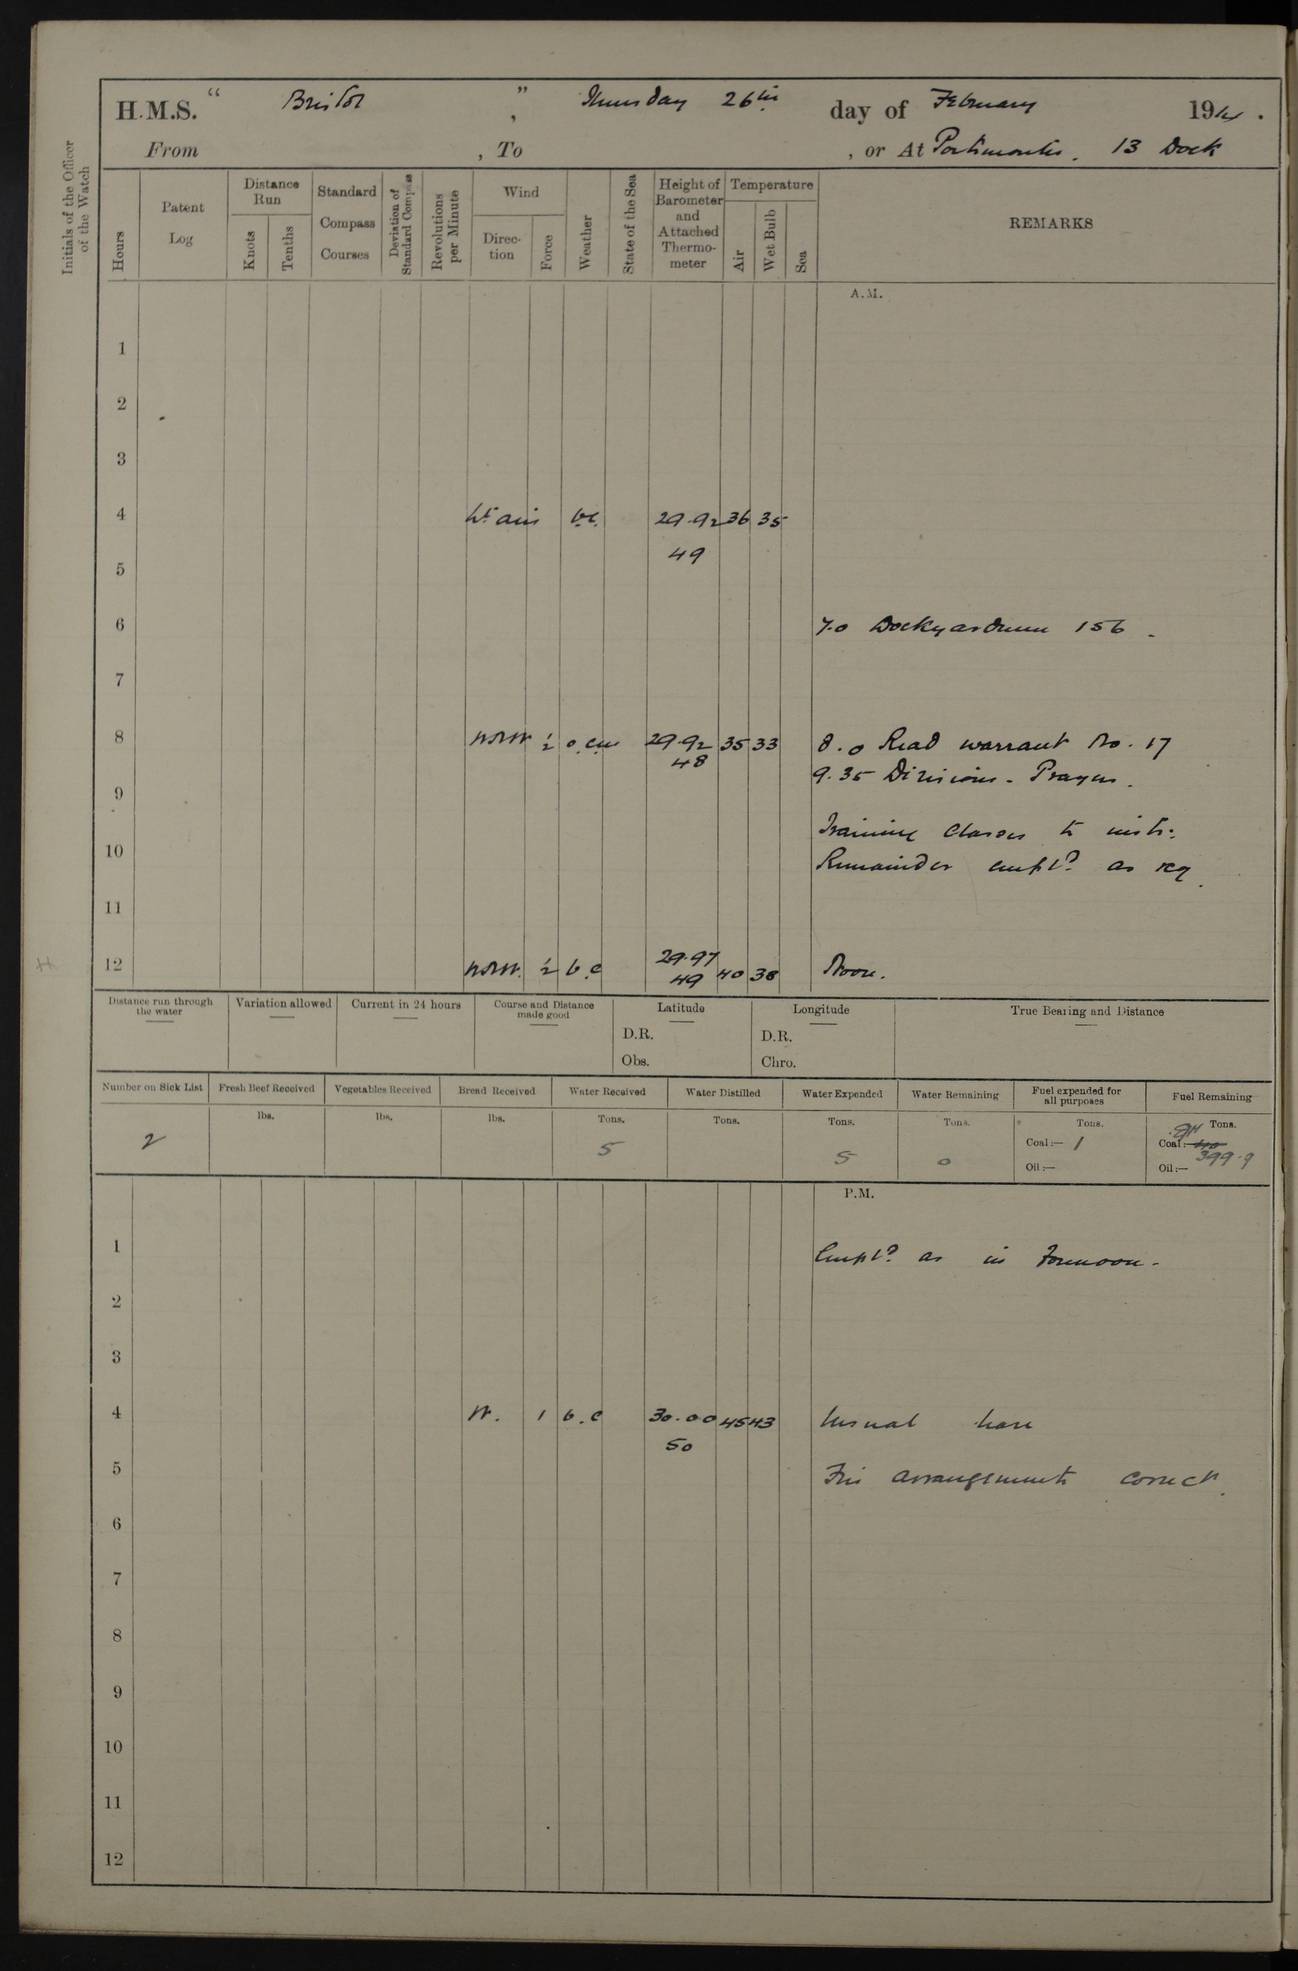 H.M.S. “ Bristol ” , Thursday 26th day of February 1914.
From , To , or At Portsmouth. 13 Dock
Initials of the Officer of the Watch
Hours Patent Log Distance Run Knots Tenths Standard Compass Courses Deviation of Standard Compass Revolutions per Minute Wind Direction Force Weather State of the Sea Height of Barometer and Attached Thermometer Temperature Air Wet Bulb Sea REMARKS
A.M.
1
2
3
4 Lt airs b.c. 29.92 36 35
49
5
6 7.0 Dockyardmen 156.
7
8 NNW ½ o.c.m 29.92 35 33 8.0 Read warrant No. 17
48
9.35 Divisions - Prayers.
9
Training Classes to instr:
10
Remainder empld as req.
11
29.97
12 NNW. ½ b.c 49 40 38 Noon.
Distance run through the water Variation allowed Current in 24 hours Course and Distance made good Latitude Longitude True Bearing and Distance
D.R. D.R.
Obs. Chro.
Number on Sick List Fresh Beef Received Vegetables Received Bread Received Water Received Water Distilled Water Expended Water Remaining Fuel expended for all purposes Fuel Remaining
lbs. lbs. lbs. Tons. Tons. Tons. Tons. Tons. Tons.
2 5 5 0 Coal:— 1 Coal:— 399.9
Oil:— Oil:—
P.M.
1 Empld as in Forenoon.
2
3
4 W. 1 b.c 30.00 45 43 Usual leave
50
5 Fire arrangements correct.
6
7
8
9
10
11
12